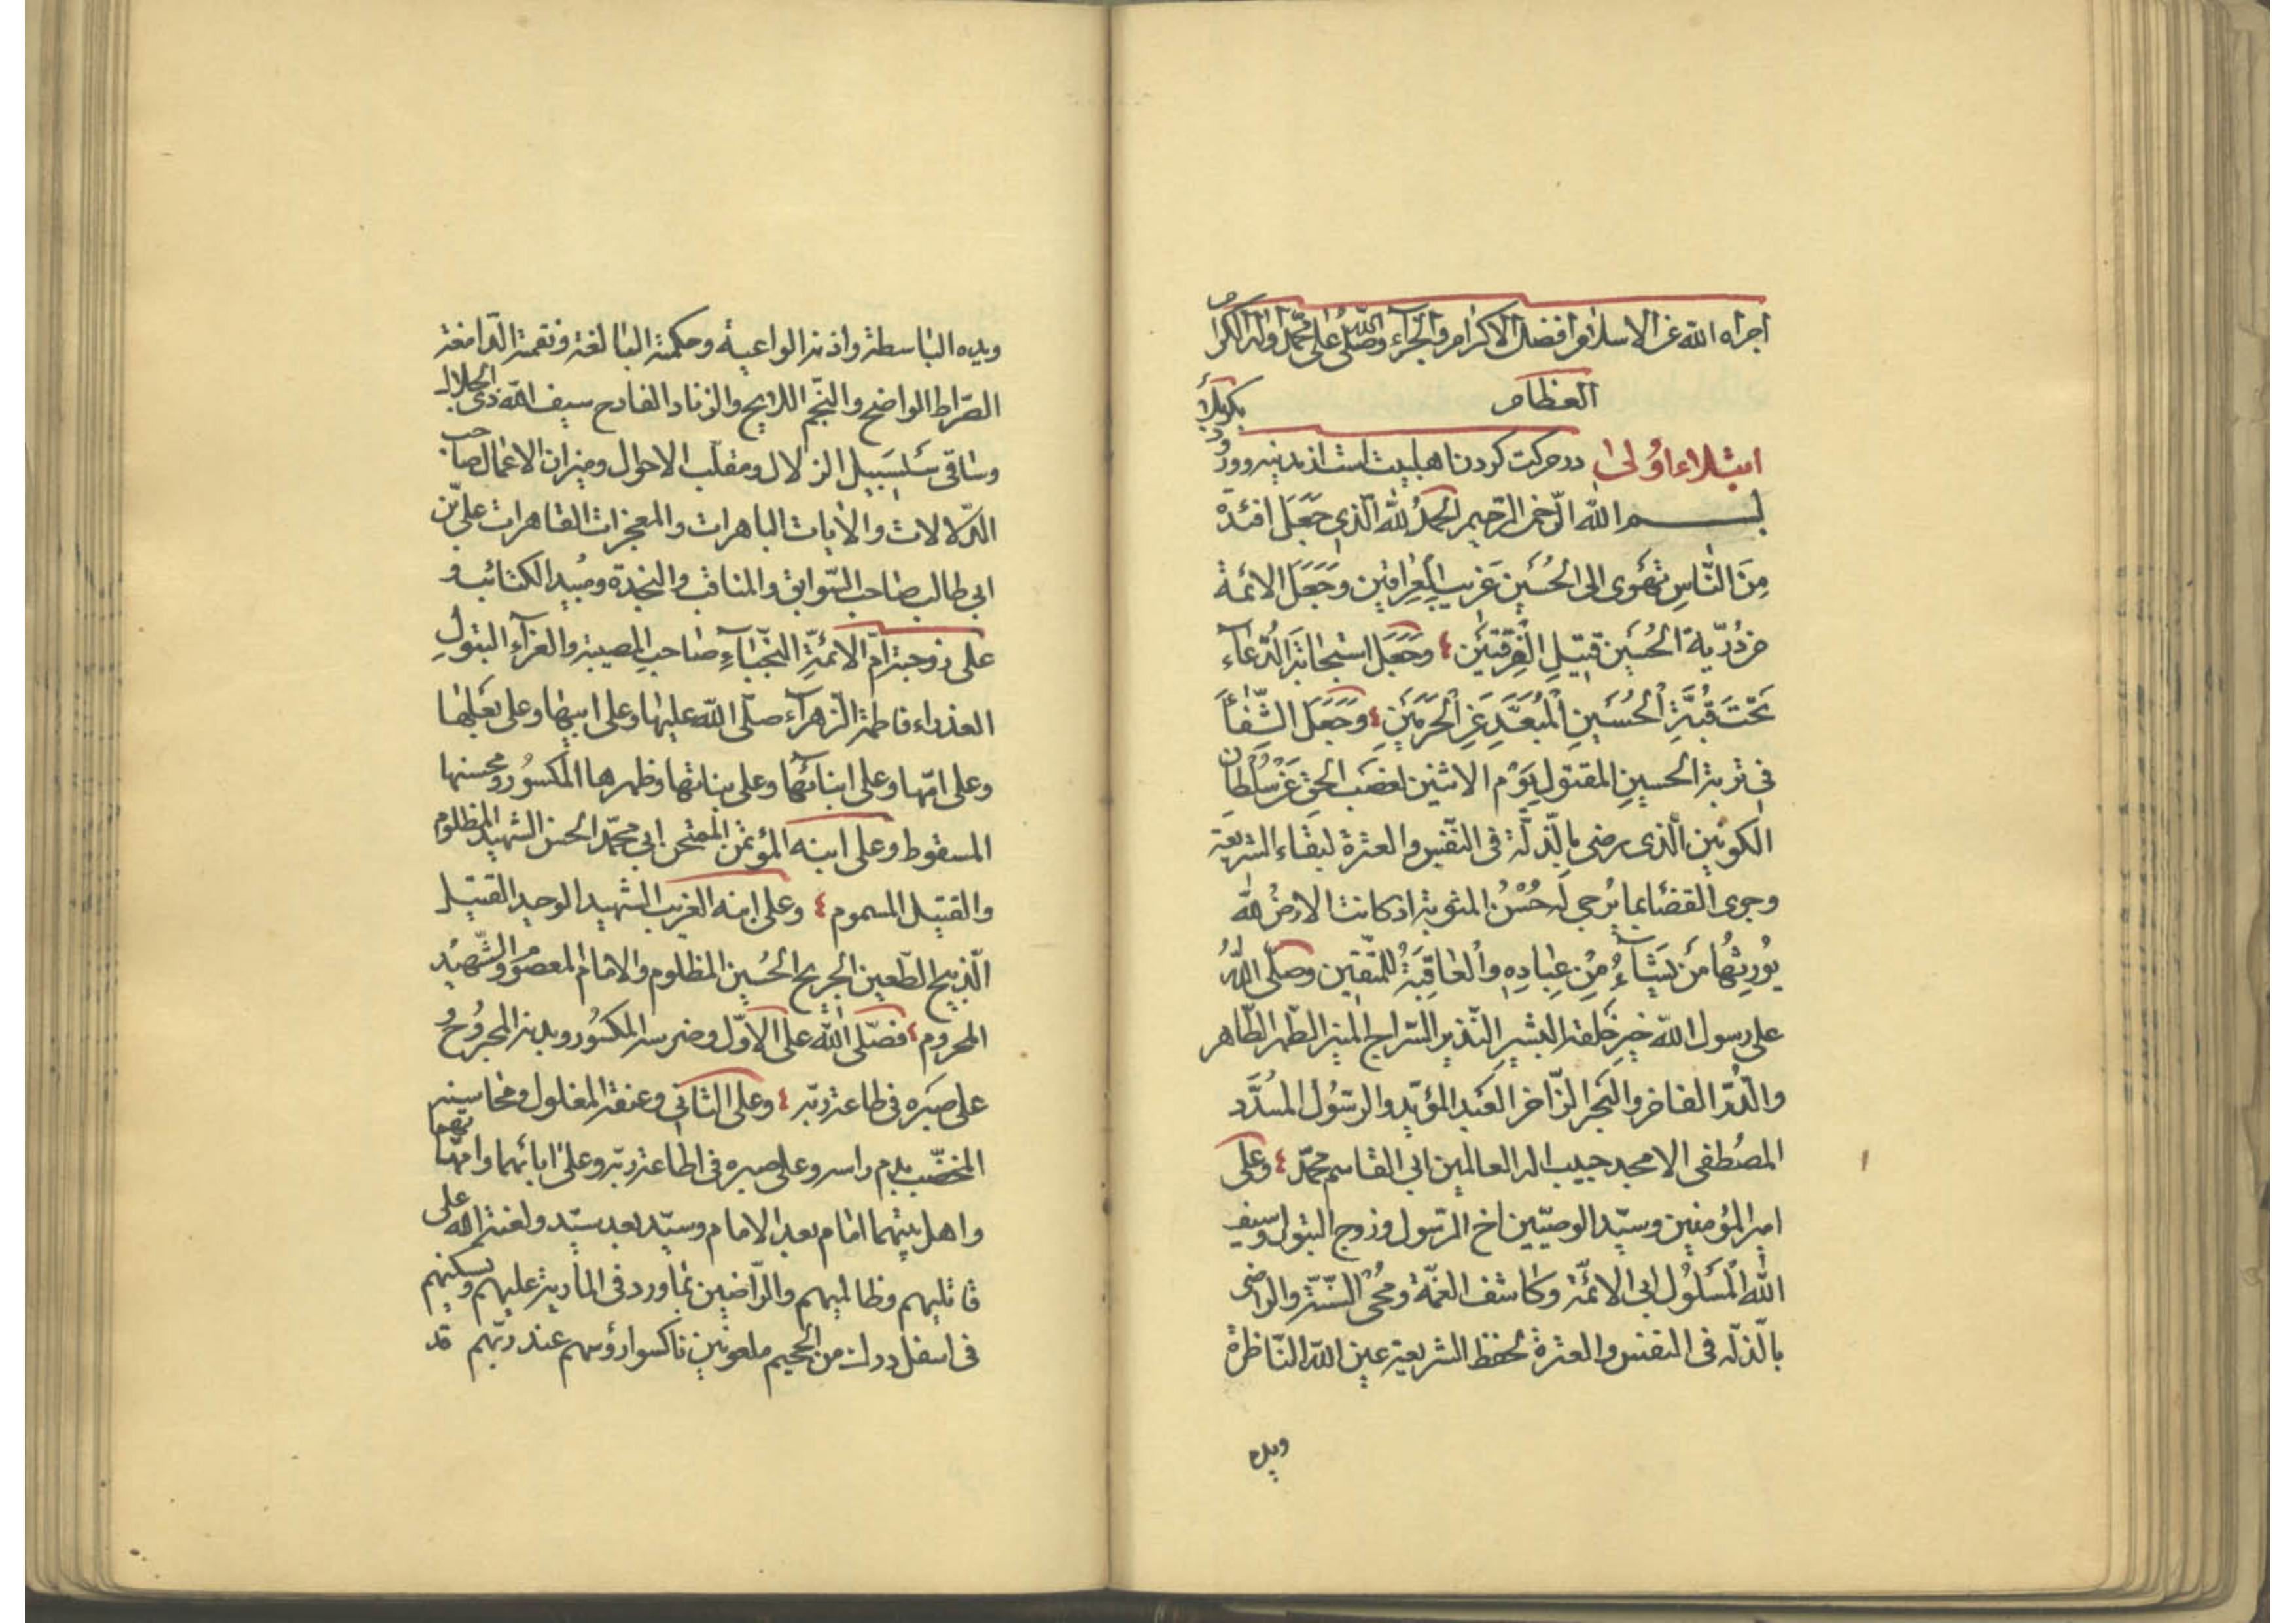 اجراه الله عن الاسلام افضل الاكرام والجزاء وصلى الله على محمد واله الكرام
العظام
ابتلاء اولى در حركت كردن اهلبيت است از مدينه وورود بكربلا
بسم الله الرحمن الرحيم الحمد لله الذى جعل افئدة
مِنَ النّاسِ تَهْوى الى الحُسَينِ غريب العراقين وجَعَلَ الائمة
من ذُرّيةِ الحُسَين قتيلِ الفرقتين وجَعَلَ استجابة الدُّعاء
تَحْتَ قُبَّةِ الحُسَينِ الْمُبَعَّدِ عَنِ الْحَرَمَيْنِ وجَعَلَ الشِّفاءَ
فى تربة الحسينِ المقتولِ يَوْم الاثنين لغصب الحق عَنْ سُلْطان
الكونين الّذى رضى بالذّلّة فى النّفس والعترة لبقاء الشريعة
وجرى القضا بما يُرجى له حُسْنُ المثوبة اذ كانت الارض لله
يُورِثُها مَنْ يَشاءُ مِنْ عِبادِهِ والْعاقِبَةُ للمتّقين وصلّى اللهُ
على رسول الله خيرِ خلقه البشيرِ النّذير السّراج المنير الطّهر الطّاهر
والدُّرّ الفاخر والبَحر الزّاخر العَبد المؤيّد والرسُول المسُدَّد
المصُطفى الامجد حبيب اله العالمين ابى القاسم محمّد وعلى
امير المؤمنين وسيّد الوصيّين اخ الرّسول وزوج البتول وسيف
الله المسَلُول ابى الائمّة وكاشف الغمّة ومُحْىِ السّنّة والراضى
بالذّلّه فى النفس والعترة لحفظ الشريعة عين الله النّاظرة
ويده
ويده الباسطة واذنه الواعية وحكمته البالغة ونقمته الدّامغة
الصّراط الواضح والنّجم اللايح والزناد القادح سيف الله ذى الجلال
وساقى سَلسَبيل الزلال ومقلّب الاحوال وميزان الاعمال صاحب
الدّلالات والايات الباهرات والمعجزات القاهرات علىّ بن
ابى طالب صاحب السّوابق والمناقب والنجدة ومبيد الكتائب و
على زوجته امّ الائمّةِ النجباءِ صاحب المصيبة والعزاءِ البتولِ
العذراء فاطمة الزهراء صلّى الله عليها وعلى ابيها وعلى بَعلِها
وعلى امّها وعلى ابنائها وعلى بناتها وظهرها المكسُور ومحسنها
المسقوط وعلى ابنه المؤتمن الممتحن ابى محمّد الحسن الشهيد المظلوم
والقتيل المسموم وعلى ابنه الغريب الشهيد الوحيد القتيل
الذّبيح الطّعين الجريح الحُسين المظلوم والامام المعصوم والشّهيد
المحروم فصلّى الله على الاوّل وضرسه المكسُور وبدنه المجروُح و
على صبره فى طاعة ربّه وعلى الثانى وعنقه المغلول ومحاسنه
المخضّب بدم راسه وعلى صبره فى اطاعة ربّه وعلى ابائهما وامّهاتهما
واهل بيتهما امام بعد الامام وسيّد بعد سيّد ولعنة الله على
قاتليهم وظالميهم والرّاضين بما ورد فى المأدية عليهم ويسكنهم
فى اسفل درك من الجحيم ملعونين ناكسوا رؤسهم عند ربّهم قد